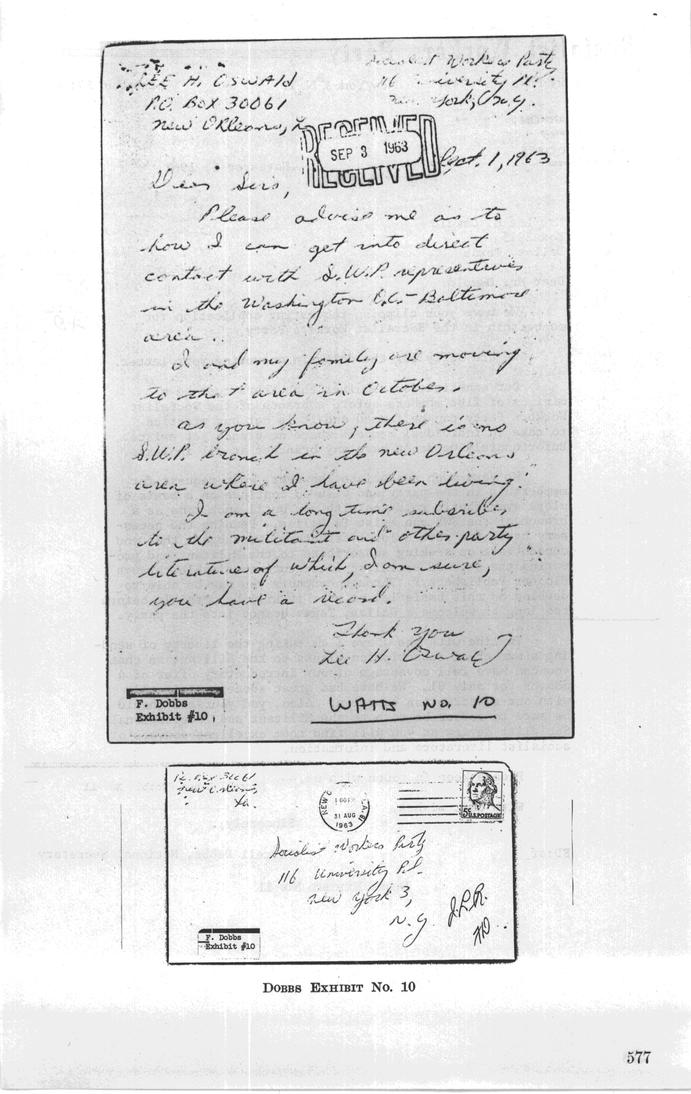 LEE H. OSWALD
P.O. Box 30061
New Orleans, L
Socialist Workers Party
116 University Pl.
New York, N.y.
RECEIVED
SEP 3 1963
RECEIVED
Sept. 1, 1963
Dear Sirs,
Please advise me as to
how I can get into direct
contact with S.W.P. representives
in the Washington D.C.-Baltimore
area.
I and my family are moving
to that area in October.
As you know, there is no
S.W.P. branch in the New Orleans
area where I have been living.
I am a long time subscriber
to the Militant and other party
literature of which, I am sure,
you have a record.
Thank you
Lee H. Oswald
F. Dobbs
Exhibit #10
WATTS NO. 10
P.O. Box 30061
New Orleans,
La.
NEW
31 AUG
1963
5¢ U.S. POSTAGE
Socialist Workers Party
116 University Pl.
New York 3,
N.y.
J.L.R.
F. Dobbs
Exhibit #10
DOBBS EXHIBIT No. 10
577